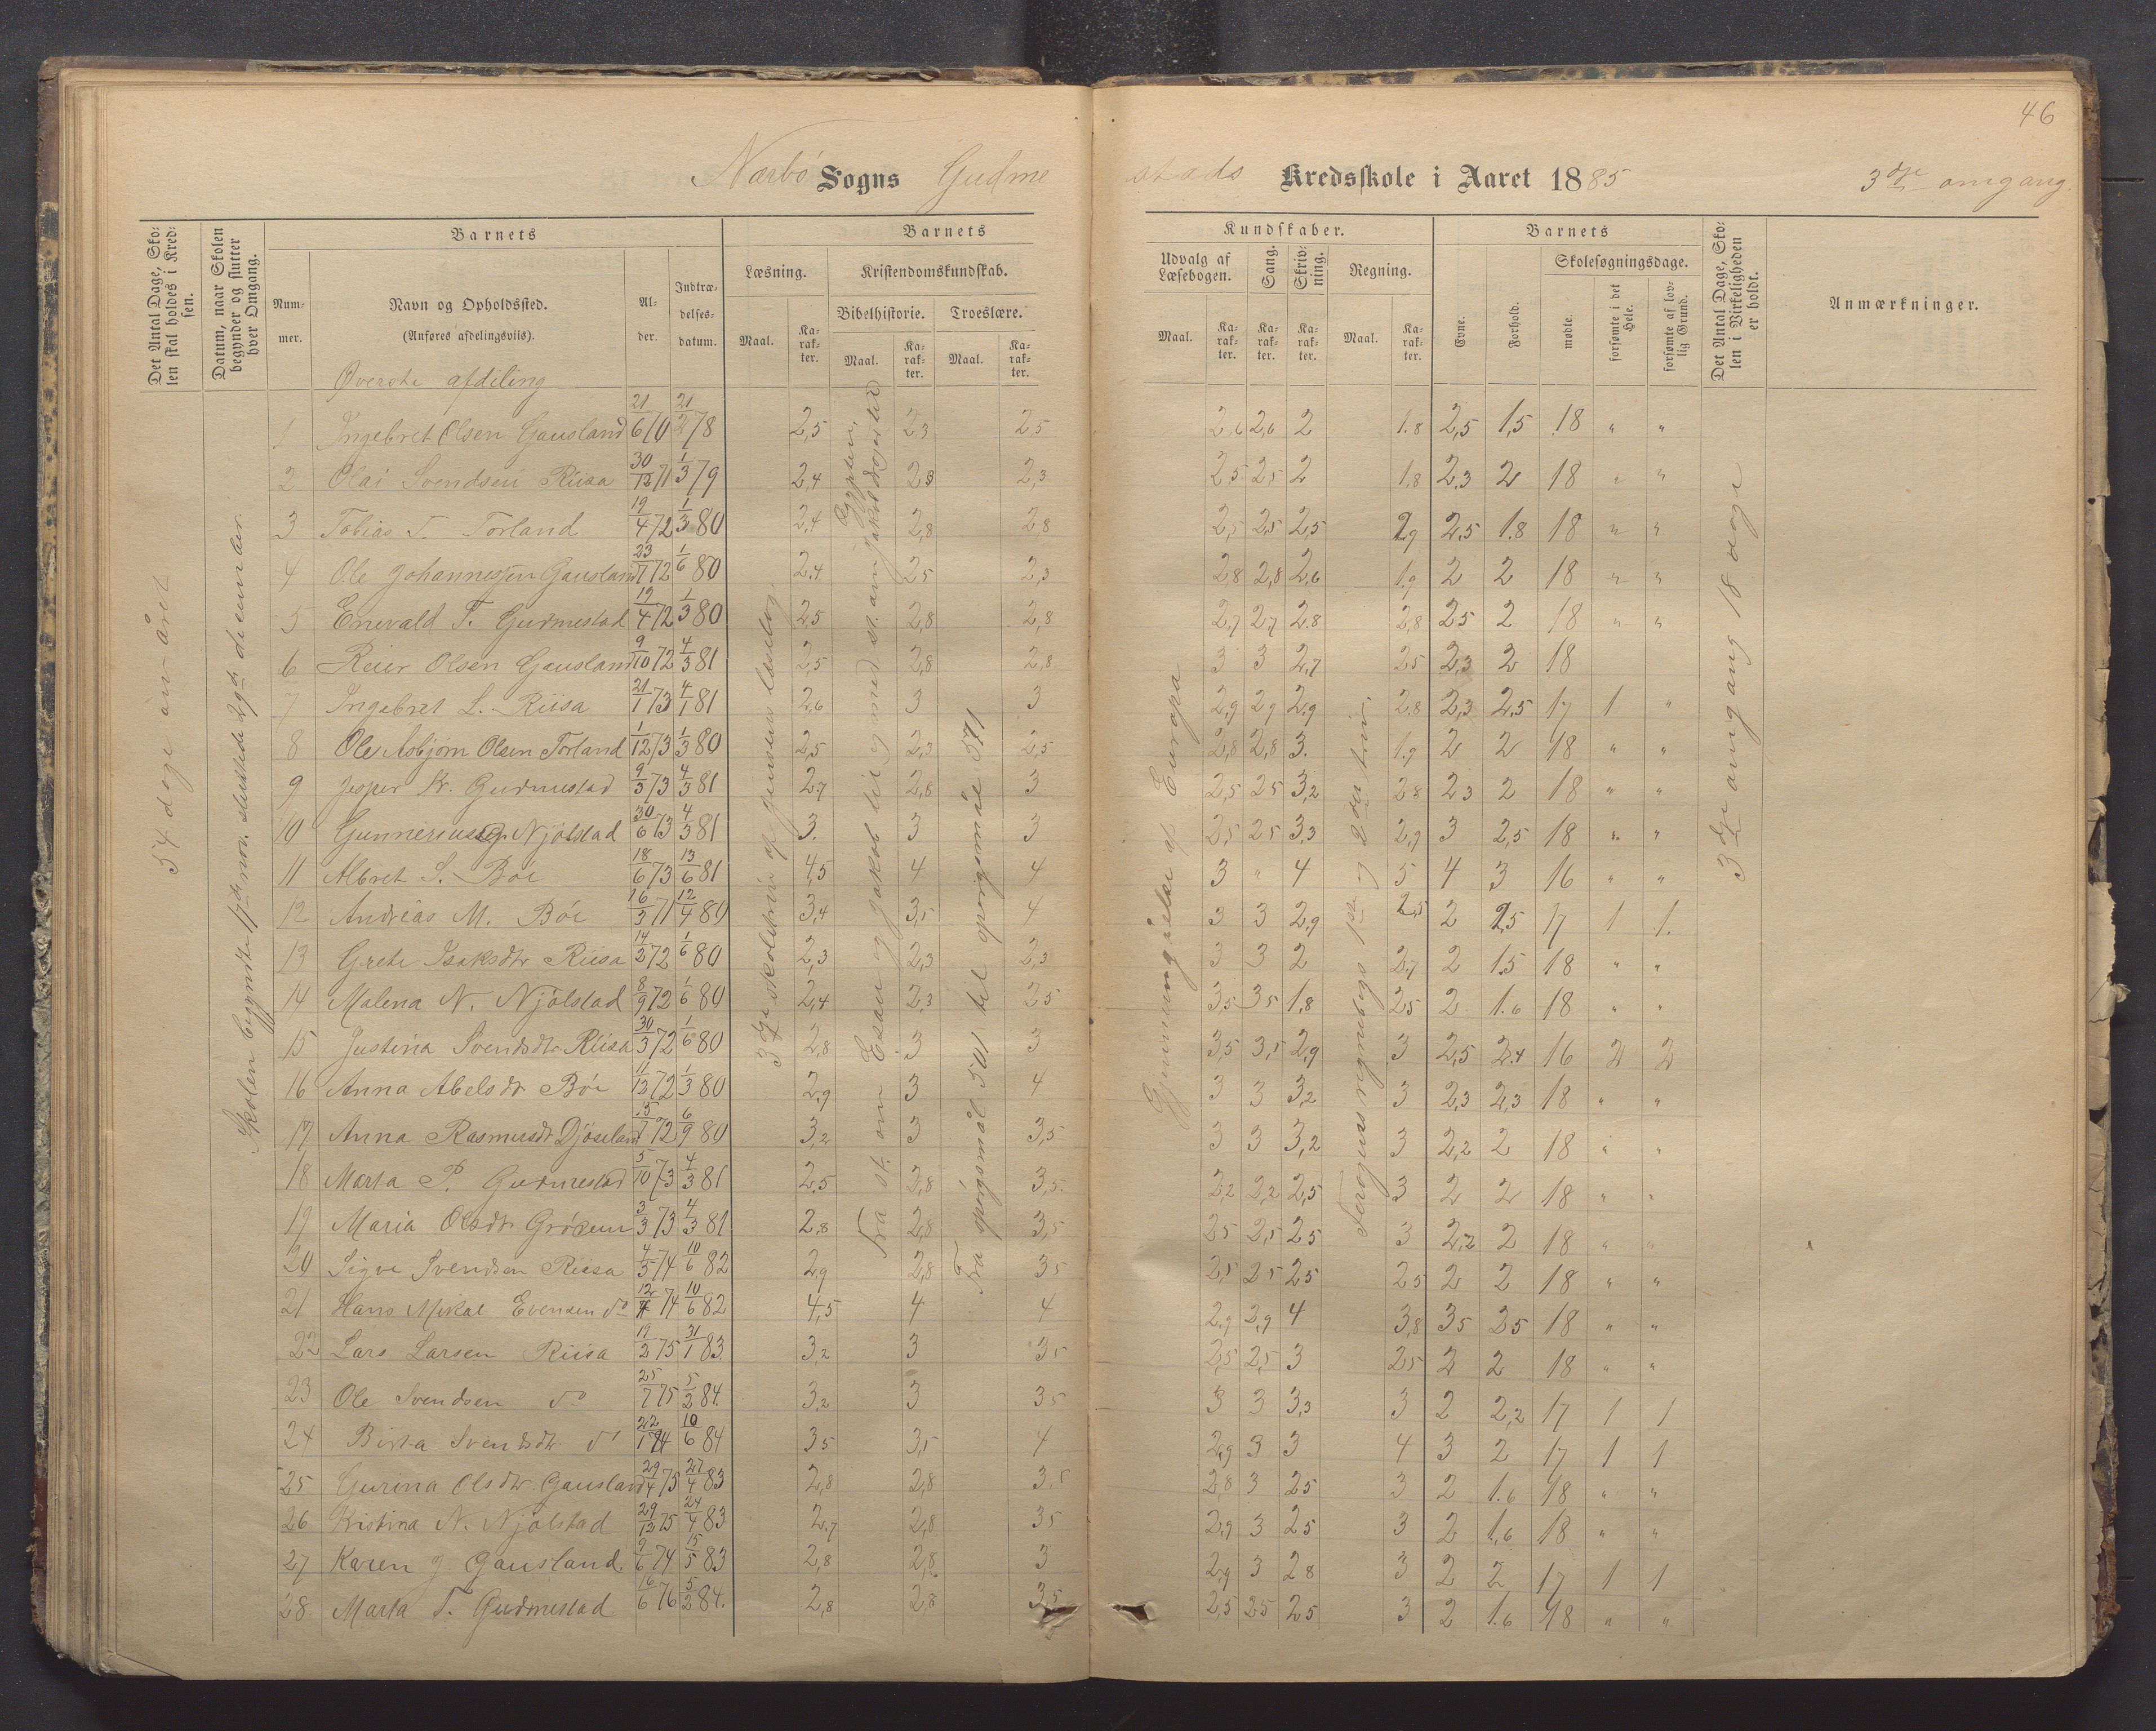 46
Nærbö Sogns Gudme
stads Kredsskole i Aaret 1885 3dje omgang.
Det Antal Dage, Skolen skal holdes i Kredsen.
Datum, naar Skolen begynder og slutter hver Omgang.
Barnets
Nummer.
Navn og Opholdssted.
(Anføres afdelingsviis).
Alder.
Indtrædelsesdatum.
Barnets
Læsning.
Maal.
Karakter.
Kristendomskundskab.
Bibelhistorie.
Maal.
Karakter.
Troeslære.
Maal.
Karakter.
Kundskaber.
Udvalg af Læsebogen.
Maal.
Karakter.
Sang.
Karakter.
Skrivning.
Karakter.
Regning.
Maal.
Karakter.
Barnets
Evne.
Forhold.
Skolesøgningsdage.
mødte.
forsømte i det Hele.
forsømte af lovlig Grund.
Det Antal Dage, Skolen i Virkeligheden er holdt.
Anmærkninger.
54 dage om året
Skolen begyndte 17de nov. sluttede december
3dje skoletrin af Jensens læsebog
Fra st. om Esau og Jakob til og med st. om Jakobs Ægypten.
Fra spörgsmål 501 til spörgsmål 571
Gjennemgåelse af Europa
1ste og 2det trin.
3dje omgang 18 dage
Överste afdeling
1 Ingebret Olsen Gausland 21/6 70 21/2 78 2,5 2,3 2,5 2,6 2,6 2 1.8 2,5 1,5 18 " "
2 Olai Svendsen Riisa 30/12 71 1/3 79 2,4 2,3 2,3 2,5 2,5 2 1,8 2,3 2 18 " "
3 Tobias T. Torland 19/4 72 1/3 80 2,4 2,8 2,8 2,5 2,5 2,5 2,9 2,5 1.8 18 " "
4 Ole Johannessen Gausland 23/7 72 1/6 80 2,4 2,5 2,3 2,8 2,8 2,6 1.9 2 2 18 " "
5 Enevald T. Gudmestad 19/4 72 1/3 80 2,5 2,8 2,8 2,7 2,7 2.8 2,8 2,5 2 18 " "
6 Reier Olsen Gausland 9/10 72 4/3 81 2,5 2,8 2,8 3 3 2,7 2,5 2,3 2 18
7 Ingebret L. Riisa 21/1 73 4/1 81 2,6 3 3 2,9 2,9 2,9 2.8 2,3 2,5 17 1 "
8 Ole Asbjörn Olsen Torland 1/12 73 1/3 80 2,5 2,3 2,5 2,8 2,8 3. 1.9 2 2 18 " "
9 Jesper Kr. Gudmestad 9/3 73 4/3 81 2,7 2,8 3 2,5 2,5 3,2 2,8 2,3 2 18 " "
10 Gunnerius Njölstad 30/6 73 4/3 81 3. 3 3 2,5 2,5 3,3 2,9 3 2,5 18 " "
11 Albret S. Böe 18/6 73 13/6 81 4,5 4 4 3 " 4 5 4 3 16 " "
12 Andreas M. Böe 16/3 71 12/4 80 3,4 3,5 4 3 3 2,9 2,5 2 2,5 17 1 1.
13 Grete Isaksdtr Riisa 14/2 72 1/6 80 2,3 2,3 2,3 3 3 2 2,7 2 1.5 18 " "
14 Malena N. Njölstad 8/9 72 1/6 80 2,4 2,3 2,5 3,5 3,5 1,8 2,5 2 1.6 18 " "
15 Justina Svendsdtr Riisa 30/3 72 1/6 80 2,8 3 3 3,5 3,5 2,9 3 2,5 2.4 16 2 2
16 Anna Abelsdtr Böe 11/12 72 1/3 80 2,9 3 4 3 3 3,2 3 2,3 2,3 18 " "
17 Anna Rasmusdtr Djöseland 15/7 72 6/9 80 3,2 3 3,5 3 3 3,2 3 2,2 2 18 " "
18 Marta P. Gudmestad 5/10 73 4/3 81 2,5 2,8 3,5. 2,2 2,2 2,5 3 2 2 18 " "
19 Maria Olsdtr Grödem 3/3 73 4/3 81 2,8 2,8 3,5 2,5 2,5 2,5 3 2,2 2 18 " "
20 Sigve Svendsen Riisa 4/5 74 10/6 82 2,9 2,8 3,5 2,5 2,5 2,5 2,5 2 2 18 " "
21 Hans Mikal Evensen do 74 10/6 82 4,5 4 4 2,9 2,9 4 3,8 3,5 2,5 18 " "
22 Lars Larsen Riisa 19/2 75 31/1 83. 3,2 3 3,5 2,5 2,5 3 2,5 2 2 18 " "
23 Ole Svendsen do 25/7 75 5/2 84. 3,2 3 3,5 3 3 3,3 3 2 2,2 17 1 1
24 Birta Svendsdtr do 22/1 74 10/6 84 3,5 3,5 4 2,9 3 3 4 3 2 17 1 1
25 Gurina Olsdtr. Gausland 29/4 75 27/4 83 2,8 2,8 3,5 2,8 3 2,5 3 2 1.6 18 " "
26 Kristina N. Njölstad 29/12 75 24/4 83 2,7 2,8 3,5 2,9 3 2,5 3 2 1,6 18 " "
27 Karen J. Gausland. 9/6 74 15/5 83 2,8 2,8 3 2,9 3 2,8 3 2 2 17 1 1
28 Marta T. Gudmestad 16/6 76 5/2 84. 2,8 2,8 3,5 2,5 2,5 2,5 3 2 1.6 18 " "